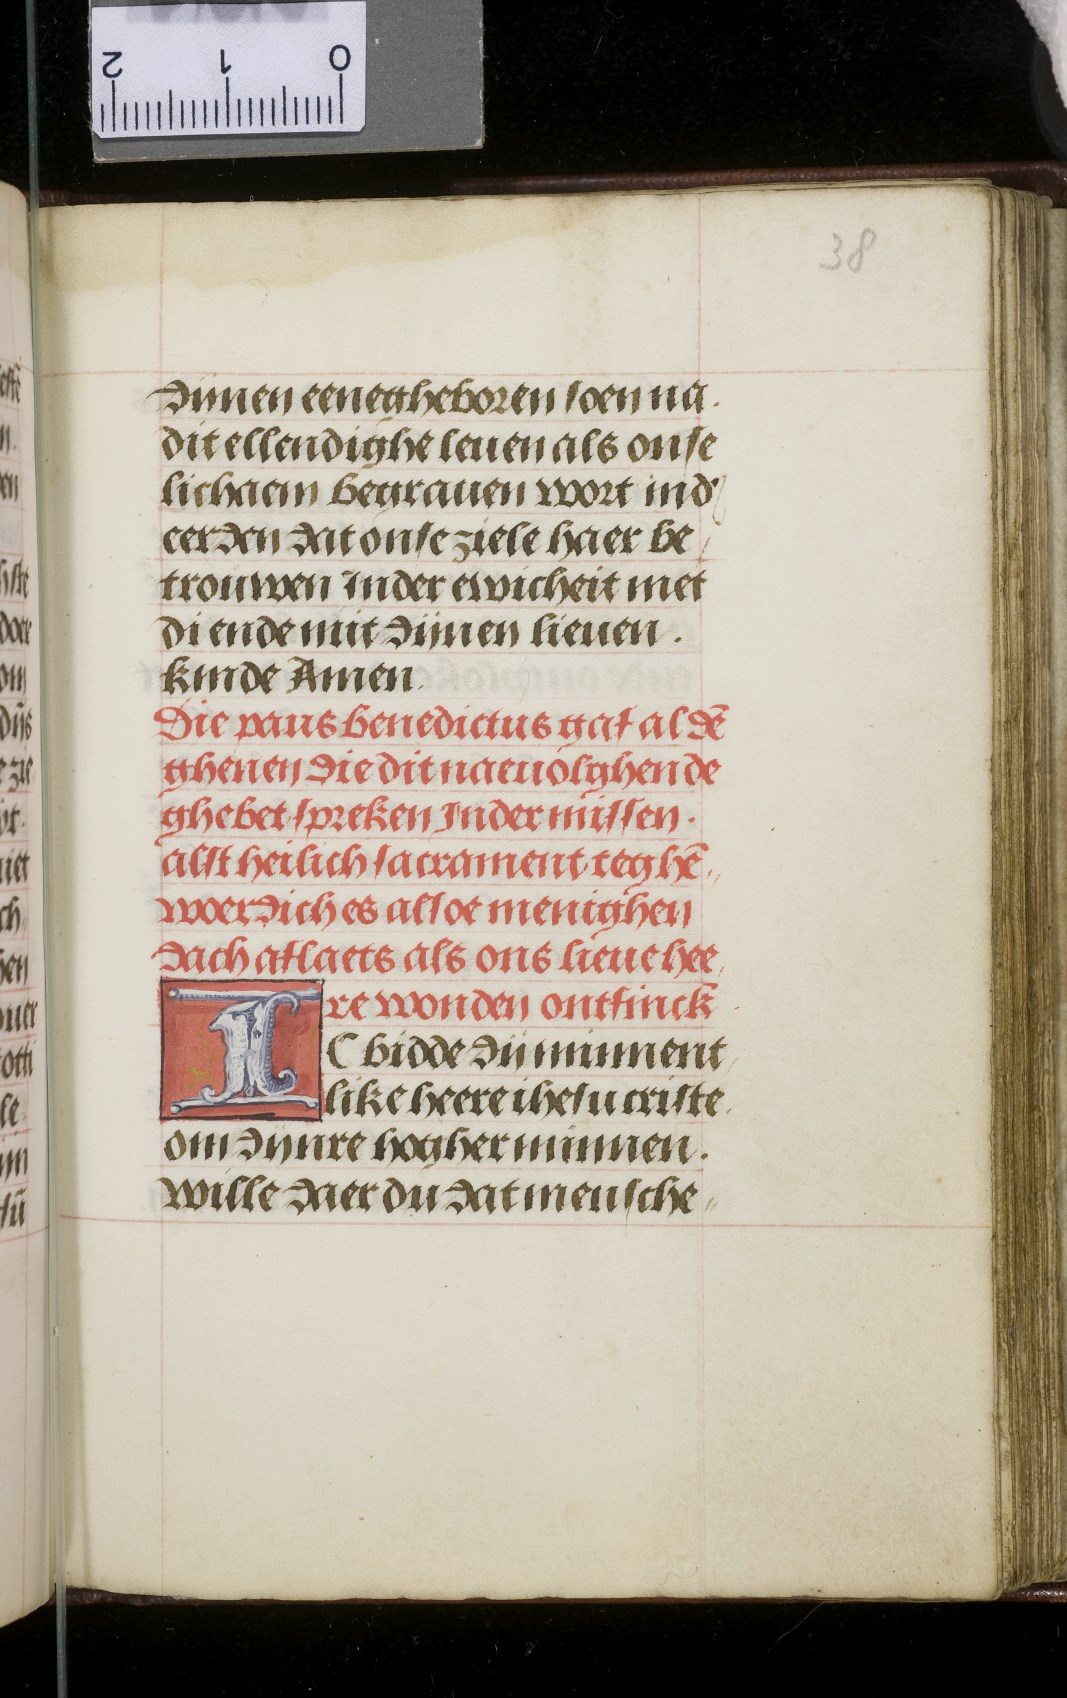 38
dijnen eenegheboren soen na.
dit ellendighe leuen als onse
lichaem begrauen wort ind'
eerden dat onse ziele haer be
trouwen Inder ewicheit met
di ende mit dijnen lieuen.
kinde Amen.
Die paus benedictus gaf al dē
ghenen die dit naeuolghende
ghebet spreken Inder missen.
alst heilich sacrament teghē
woerdich es alsoe menighen
dach aflaets als ons lieue hee
re wonden ontfinck
IC bidde dij minnent
like heere ihesu criste
om dijnre hogher minnen.
wille daer du dat mensche